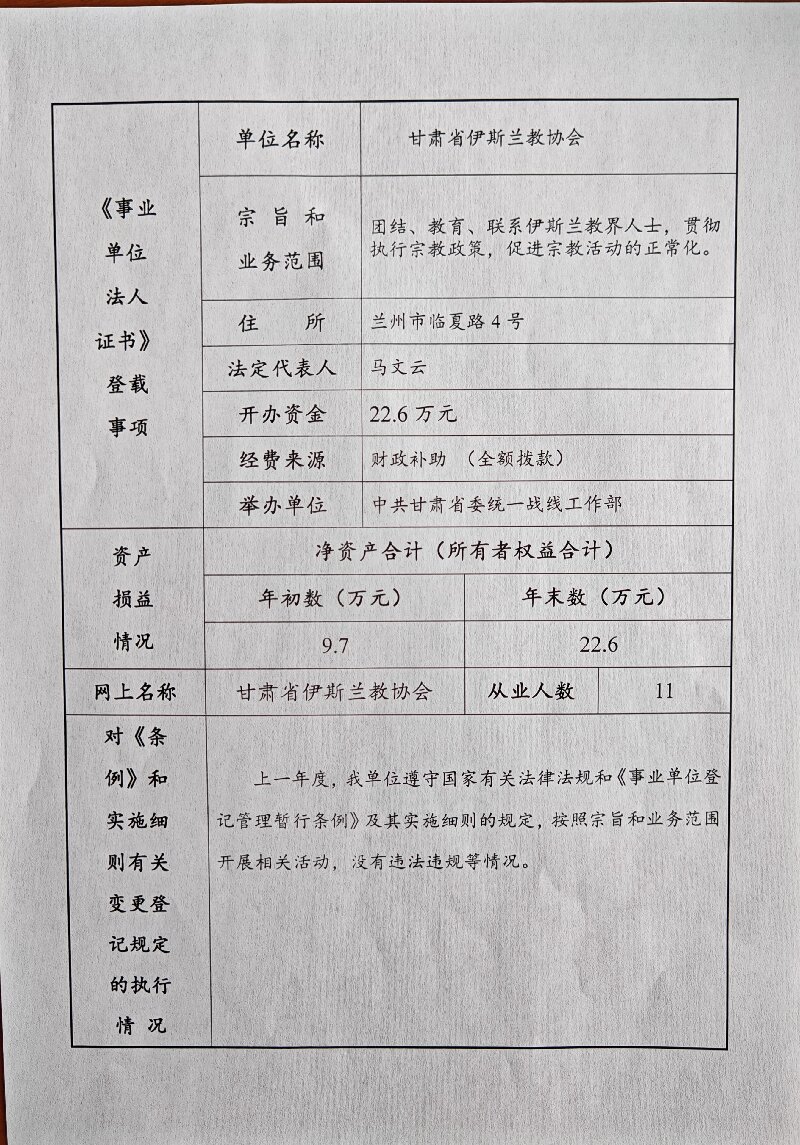 《事业
单位
法人
证书》
登载
事项
单位名称
甘肃省伊斯兰教协会
宗旨和
业务范围
团结、教育、联系伊斯兰教界人士，贯彻
执行宗教政策，促进宗教活动的正常化。
住 所
兰州市临夏路 4 号
法定代表人
马文云
开办资金
22.6 万元
经费来源
财政补助 （全额拨款）
举办单位
中共甘肃省委统一战线工作部
资产
损益
情况
净资产合计（所有者权益合计）
年初数（万元）
年末数（万元）
9.7
22.6
网上名称
甘肃省伊斯兰教协会
从业人数
11
对《条
例》和
实施细
则有关
变更登
记规定
的执行
情 况
上一年度，我单位遵守国家有关法律法规和《事业单位登
记管理暂行条例》及其实施细则的规定，按照宗旨和业务范围
开展相关活动，没有违法违规等情况。